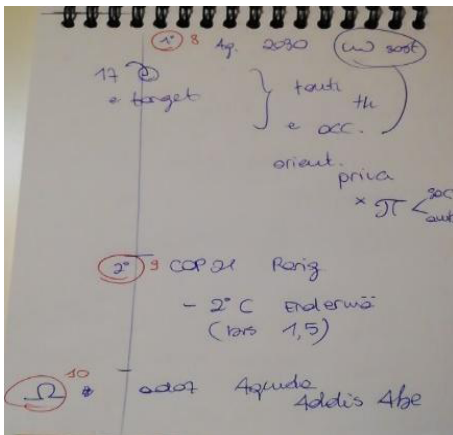 1° 8 Ag. 2030 sost
17
e target } tanti th
e occ.
orient.
priva
× π < soc
aut
2° 9 COP 21 Parig
- 2° C
( 1,5)
Ω 10 adoz Agenda
Addis Abe